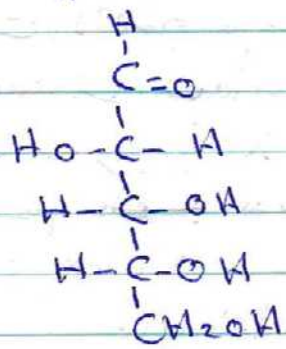 H
C=O
HO-C-H
H-C-OH
H-C-OH
CH2OH